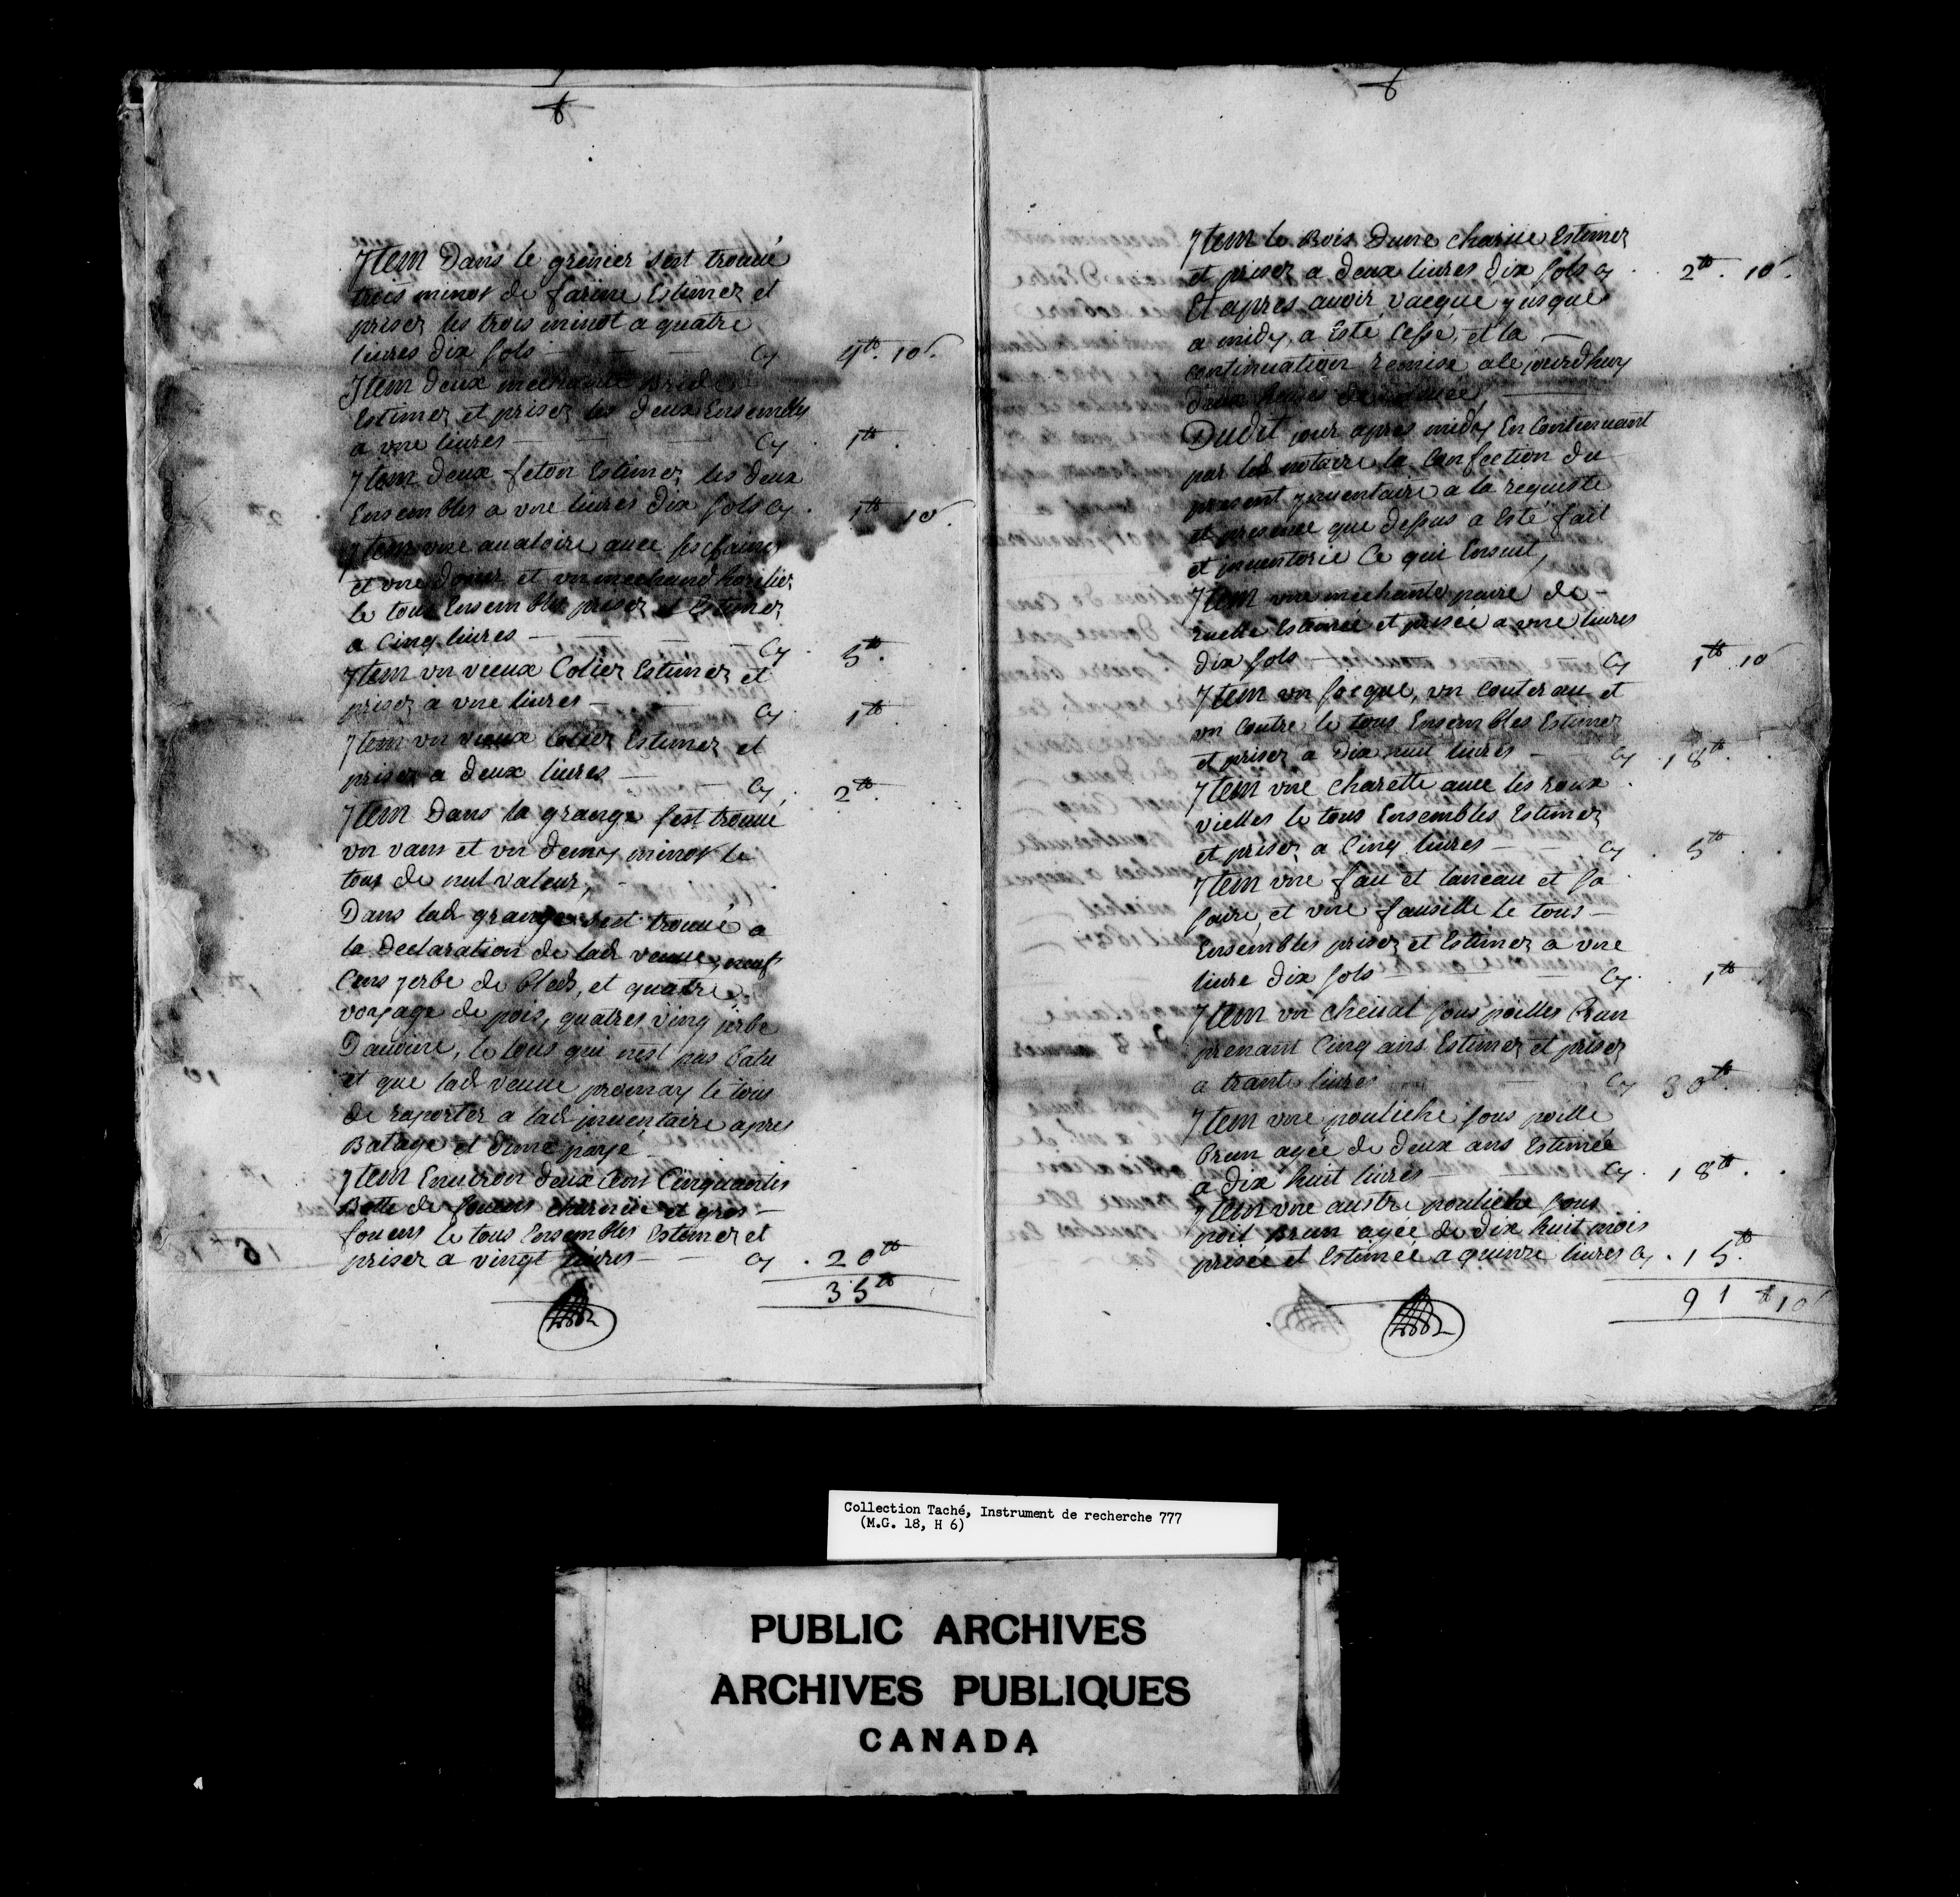 Jtem Dans le grenier sest trouué
trois minot de farine Estimez et
prisez les trois minot a quatre
liures dix sols — — — Cy 4tt. 10s.
Jtem deux mechante bride
Estimez et prisez les deux Ensembles
a vne liures — — — Cy 1tt.
Jtem deux feton Estimez les deux
Ensembles a vne liures dix sols Cy. 1tt 10s.
Jtem vne aualoire auec ses chaines
et vne et vn mechand
le tous Ensembles prisez et Estimez
a Cinq liures — — — Cy. 5tt.
Jtem vn vieux Colier Estimez et
prisez a vne liures — — Cy. 1tt.
Jtem vn vieux Colier Estimez et
prisez a deux liures — — Cy. 2tt.
Jtem Dans la grange sest trouué
vn vans et vn demy minot le
tous de nul valeur,
Dans lad grange sest trouué a
la declaration de lad veuue, neuf
Cens jerbe de bleds, et quatre
voyage de pois, quatres ving jerbe
Dauoine, le tous qui nest pas batu
et que lad veuue promay le tous
de raporter a lad jnuentaire apres
Batage et dime payé
Jtem Enuiron deux Cens Cinquantes
Botte de foüens charnüe et gros —
foüens le tous Ensembles Estimez et
prisez a vingt liures — — Cy . 20tt
35tt
Jtem le Bois dune charüe Estimez
et prisez a deux liures dix sols Cy . 2tt. 10s.
Et apres auoir vacqué jusques
a midy a Esté Cessé, et la —
continuation remise alejourdhuy
deux heures de releuée,
Dudit jour apres midy En Continuant
par led notaire la Confection du
present jnuentaire a la requeste
et presence que dessus a Esté fait
et jnuentorié Ce qui Ensuit,
Jtem vne mechante paire de —
ruelle Estimée et prisée a vne liures
dix sols — Cy 1tt 10s
Jtem vn socque, vn Couterau et
vn Coutre le tous Ensembles Estimez
et prisez a dix huit liures — Cy . 18tt.
Jtem vne charette auec les roux
vielles le tous Ensembles Estimez
et prisez a Cinq liures — — Cy . 5tt.
Jtem vne fau et lanceau et sa
et vne fausille le tous —
Ensembles prisez et Estimez a vne
liure dix sols — — Cy. 1tt
Jtem vn cheual sous poilles Brun
prenant Cinq ans Estimez et prisez
a trante liures — Cy 30tt.
Jtem vne pouliche sous poille
Brun agée de deux ans Estimée
a dix huit liures — — Cy. 18tt.
Jtem vne austre pouliche sous
poil Brun agée de dix huit mois
prisée et Estimée a quinze liures Cy . 15.tt
91 tt 10s
Collection Taché, Instrument de recherche 777
(M.G. 18, H 6)
PUBLIC ARCHIVES
ARCHIVES PUBLIQUES
CANADA